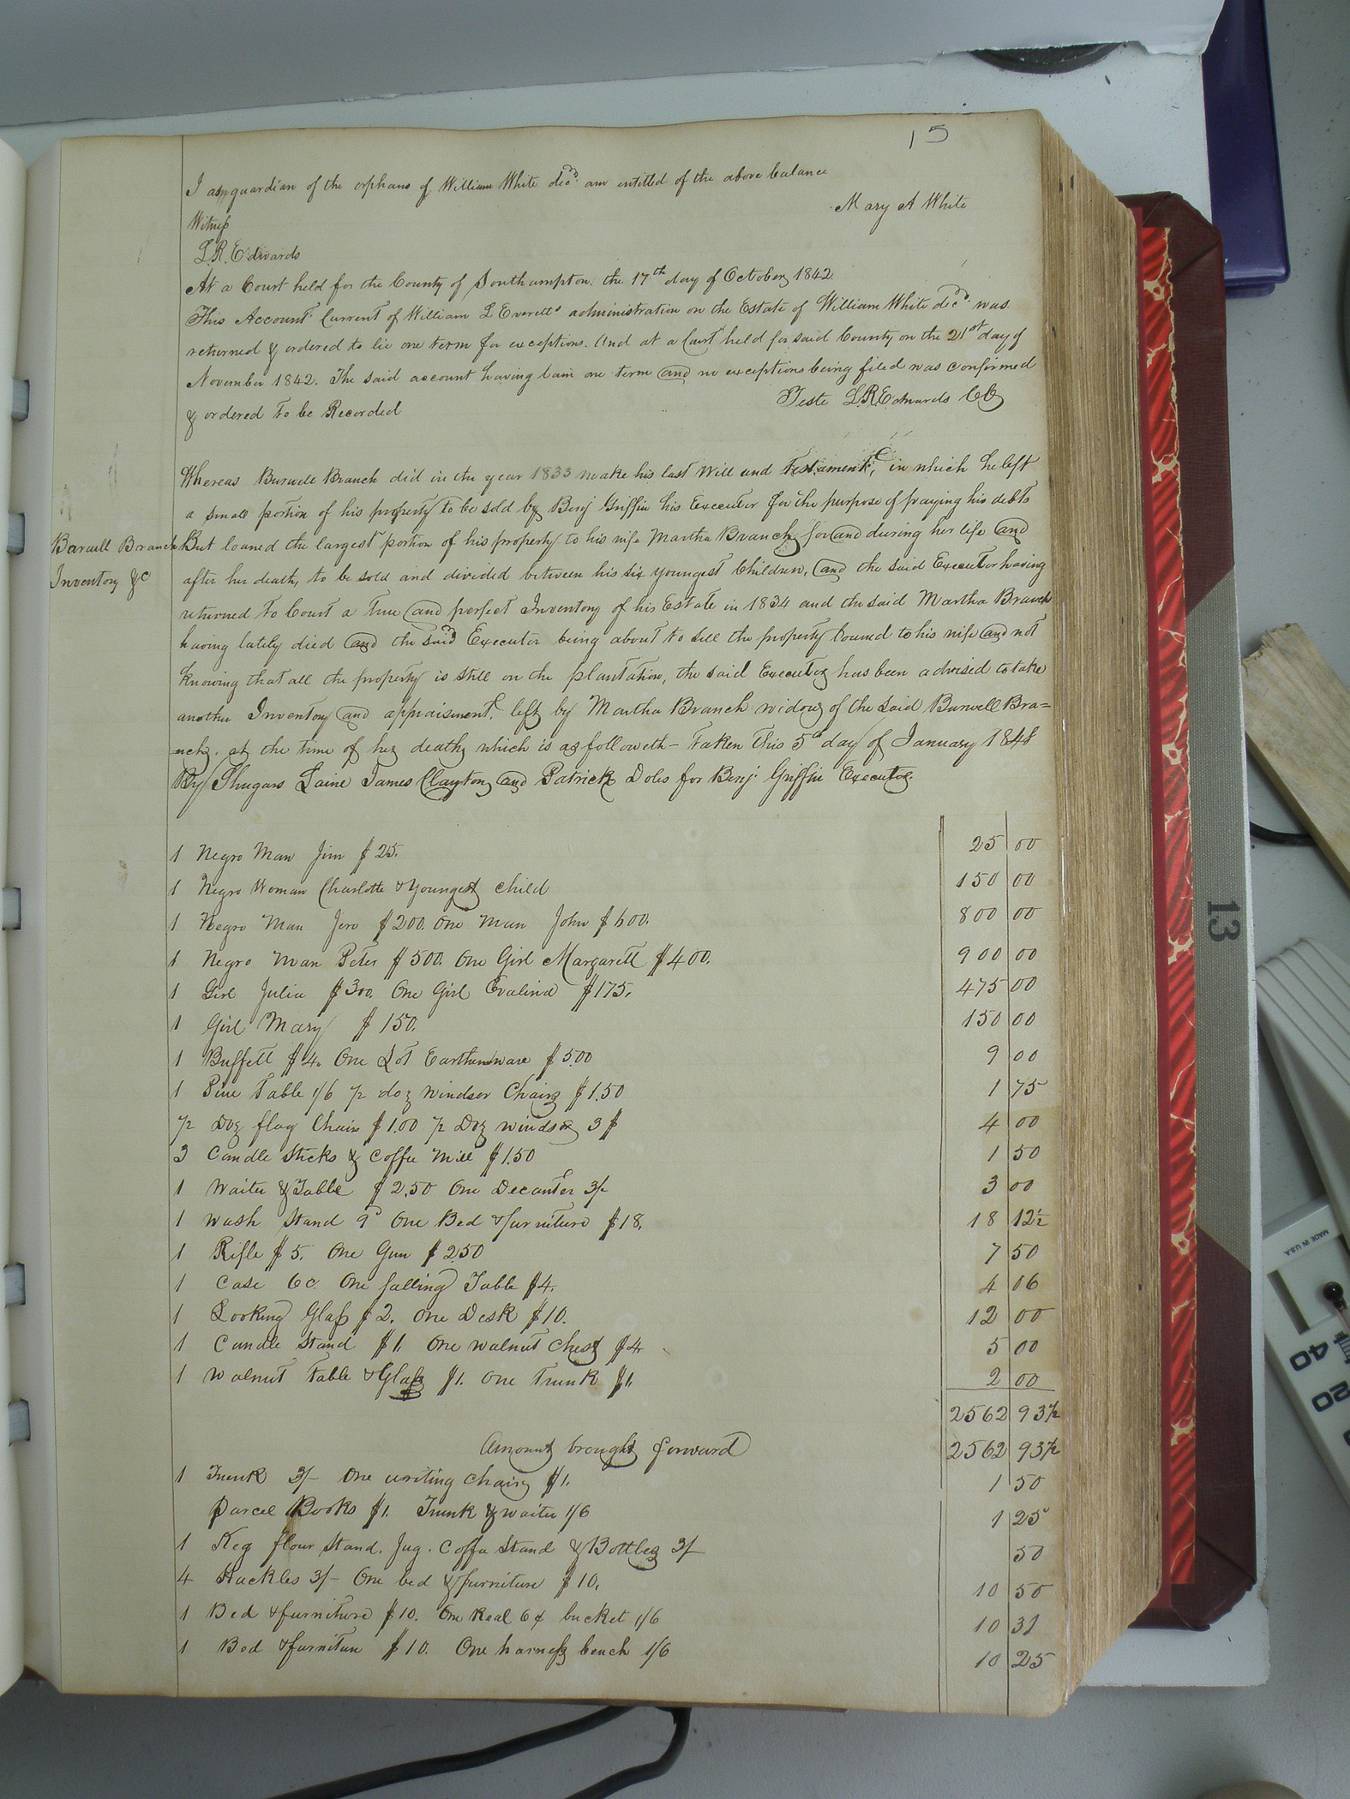 15
I as guardian of the orphans of William White decd. am entitled of the above balance
Mary A White
Witness
L.R. Edwards
At a Court held for the County of Southampton the 17th day of October 1842
This Account Current of William L Everetts administration on the Estate of William White decd. was
returned & ordered to lie one term for exceptions. And at a Court held for said County on the 21st day of
November 1842. The said account having lain one term and no exceptions being filed was confirmed
& ordered to be Recorded
Teste L.R. Edwards CC
Whereas Burwell Branch did in the year 1833 make his last Will and Testament, in which he left
a small portion of his property to be sold by Benj Griffin his Executor for the purpose of praying his debts
Barwell Branch
Inventory &c
But loaned the largest portion of his property to his wife Martha Branch for and during her life and
after her death, to be sold and divided between his six youngest Children, and the said Executor having
returned to Court a True and perfect Inventory of his Estate in 1834 and the said Martha Branch
having lately died and the said Executor being about to sell the property loaned to his wife and not
knowing that all the property is still on the plantation, the said Executor has been advised to take
another Inventory and appraisment, left by Martha Branch widow of the said Burwell Bra=
nch, at the time of her death, which is as followeth - Taken this 5th day of January 184
By Shugars Laine James Clayton and Patrick Doles for Benj Griffin Executor
1 Negro Man Jim $25. 25 00
1 Negro Woman Charlotte & Youngest child 150 00
1 Negro Man Jero $200. One Man John $600. 800 00
1 Negro Man Peter $500. One Girl Margarett $400. 900 00
1 Girl Julia $300. One Girl Evalina $175. 475 00
1 Girl Mary $150. 150 00
1 Buffett $4. One Lot Earthenware $5.00 9 00
1 Pine Table 1/6 1/2 doz Windsor Chairs $1.50 1 75
1/2 Doz flag Chairs $1.00 1/2 Doz windsor 3$ 4 00
3 Candle Sticks & Coffee Mill $1.50 1 50
1 Waiter & Table $2.50 One Decanter 3/- 3 00
1 Wash Stand 9d One Bed & furniture $18. 18 12 1/2
1 Rifle $5. One Gun $2.50 7 50
1 Case 6c. One falling Table $4. 4 06
1 Looking Glass $2. One Desk $10. 12 00
1 Candle Stand $1. One walnut Chest $4 5 00
1 Walnut Table & Glass $1. One Trunk $1. 2 00
2562 93 1/2
Amount brought forward 2562 93 1/2
1 Trunk 3/- One writing Chair $1. 1 50
Parcel Books $1. Trunk & waiter 1/6 1 25
1 Keg flour Stand. Jug. Coffee Stand & Bottles 3/- 50
4 Hackles 3/- One bed & furniture $10. 10 50
1 Bed & furniture $10. One Real 6¢ bucket 1/6 10 31
1 Bed & furniture $10. One harness bench 1/6 10 25
13
MADE IN U.S.A.
40
20